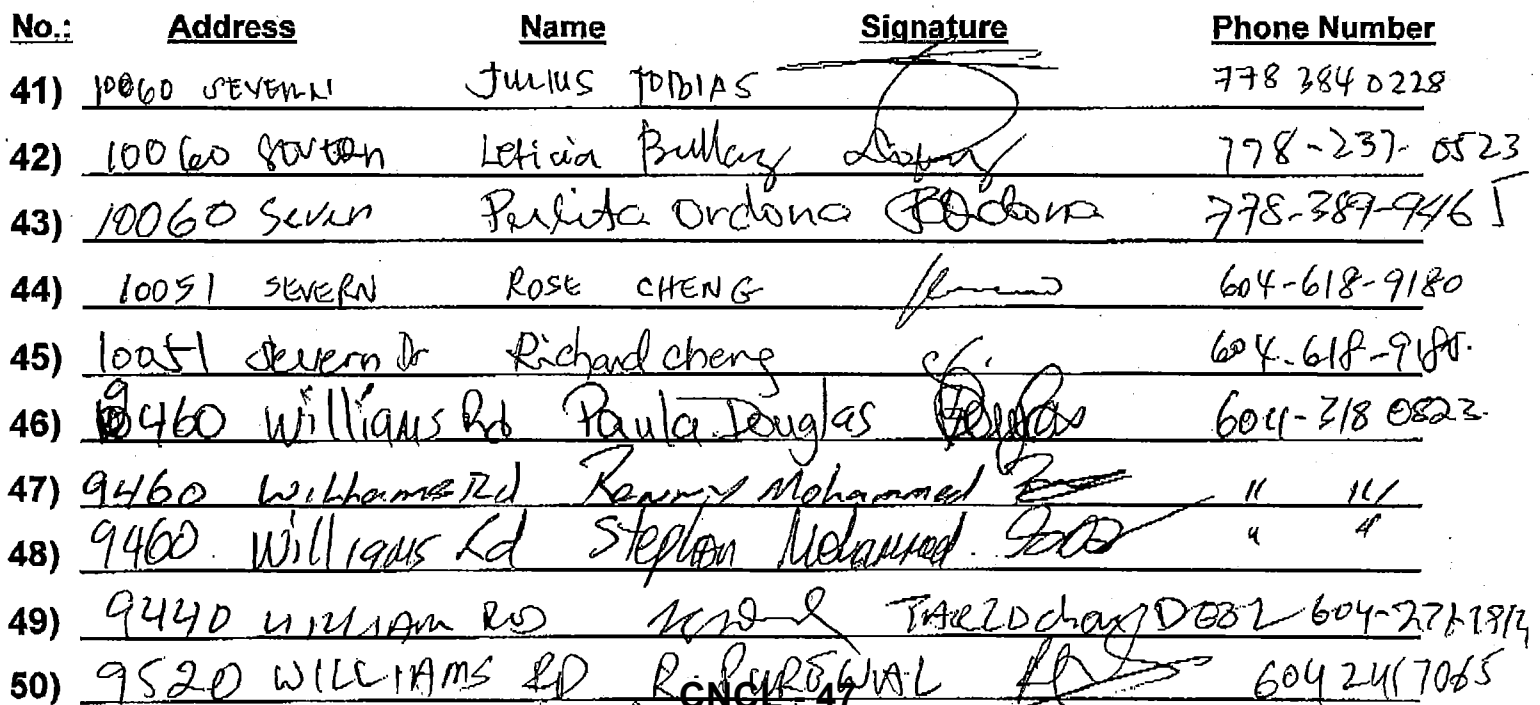 No.: Address Name Signature Phone Number
41) 10060 SEVERN JULIUS TOBIAS 778 384 0228
42) 10060 Leticia 778-237-0523
43) 10060 Severn Ordona 778-389-9465
44) 10051 SEVERN ROSE CHENG 604-618-9180
45) 10051 Severn Dr Richard cheng 604-618-9180.
46) 9460 Williams Rd Paula Douglas 604-318 0823.
47) 9460 Williams Rd Mohammed " "
48) 9460 Williams Rd Stephon Mohammed. " "
49) 9440 WILLIAM RD 604-271-1814
50) 9520 WILLIAMS RD R. PUREWAL 604 241 7065
CNCL - 47